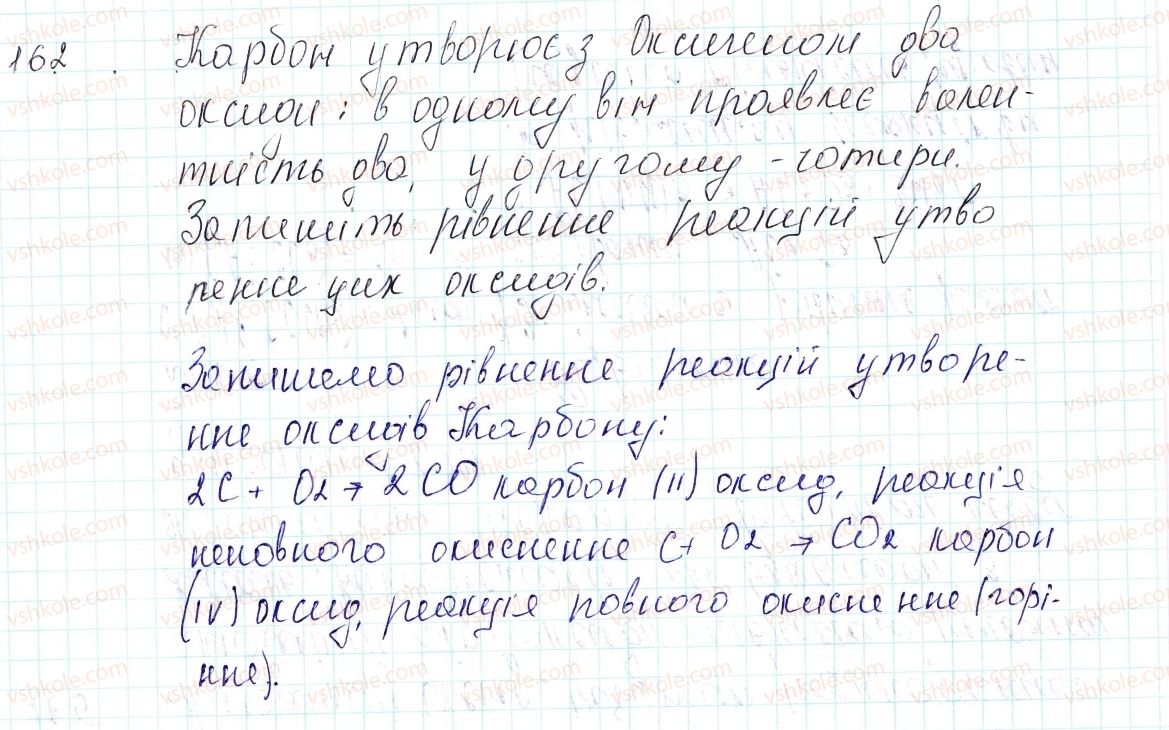 162. Карбон утворює з Оксигеном два
оксиди: в одному він проявляє вален-
тність два, у другому - чотири.
Запишіть рівняння реакцій утво
рення цих оксидів.
Запишемо рівняння реакцій утворе-
ння оксидів Карбону:
2C + O2 → 2CO карбон (II) оксид, реакція
неповного окиснення C + O2 → CO2 карбон
(IV) оксид, реакція повного окиснення (горі-
ння).